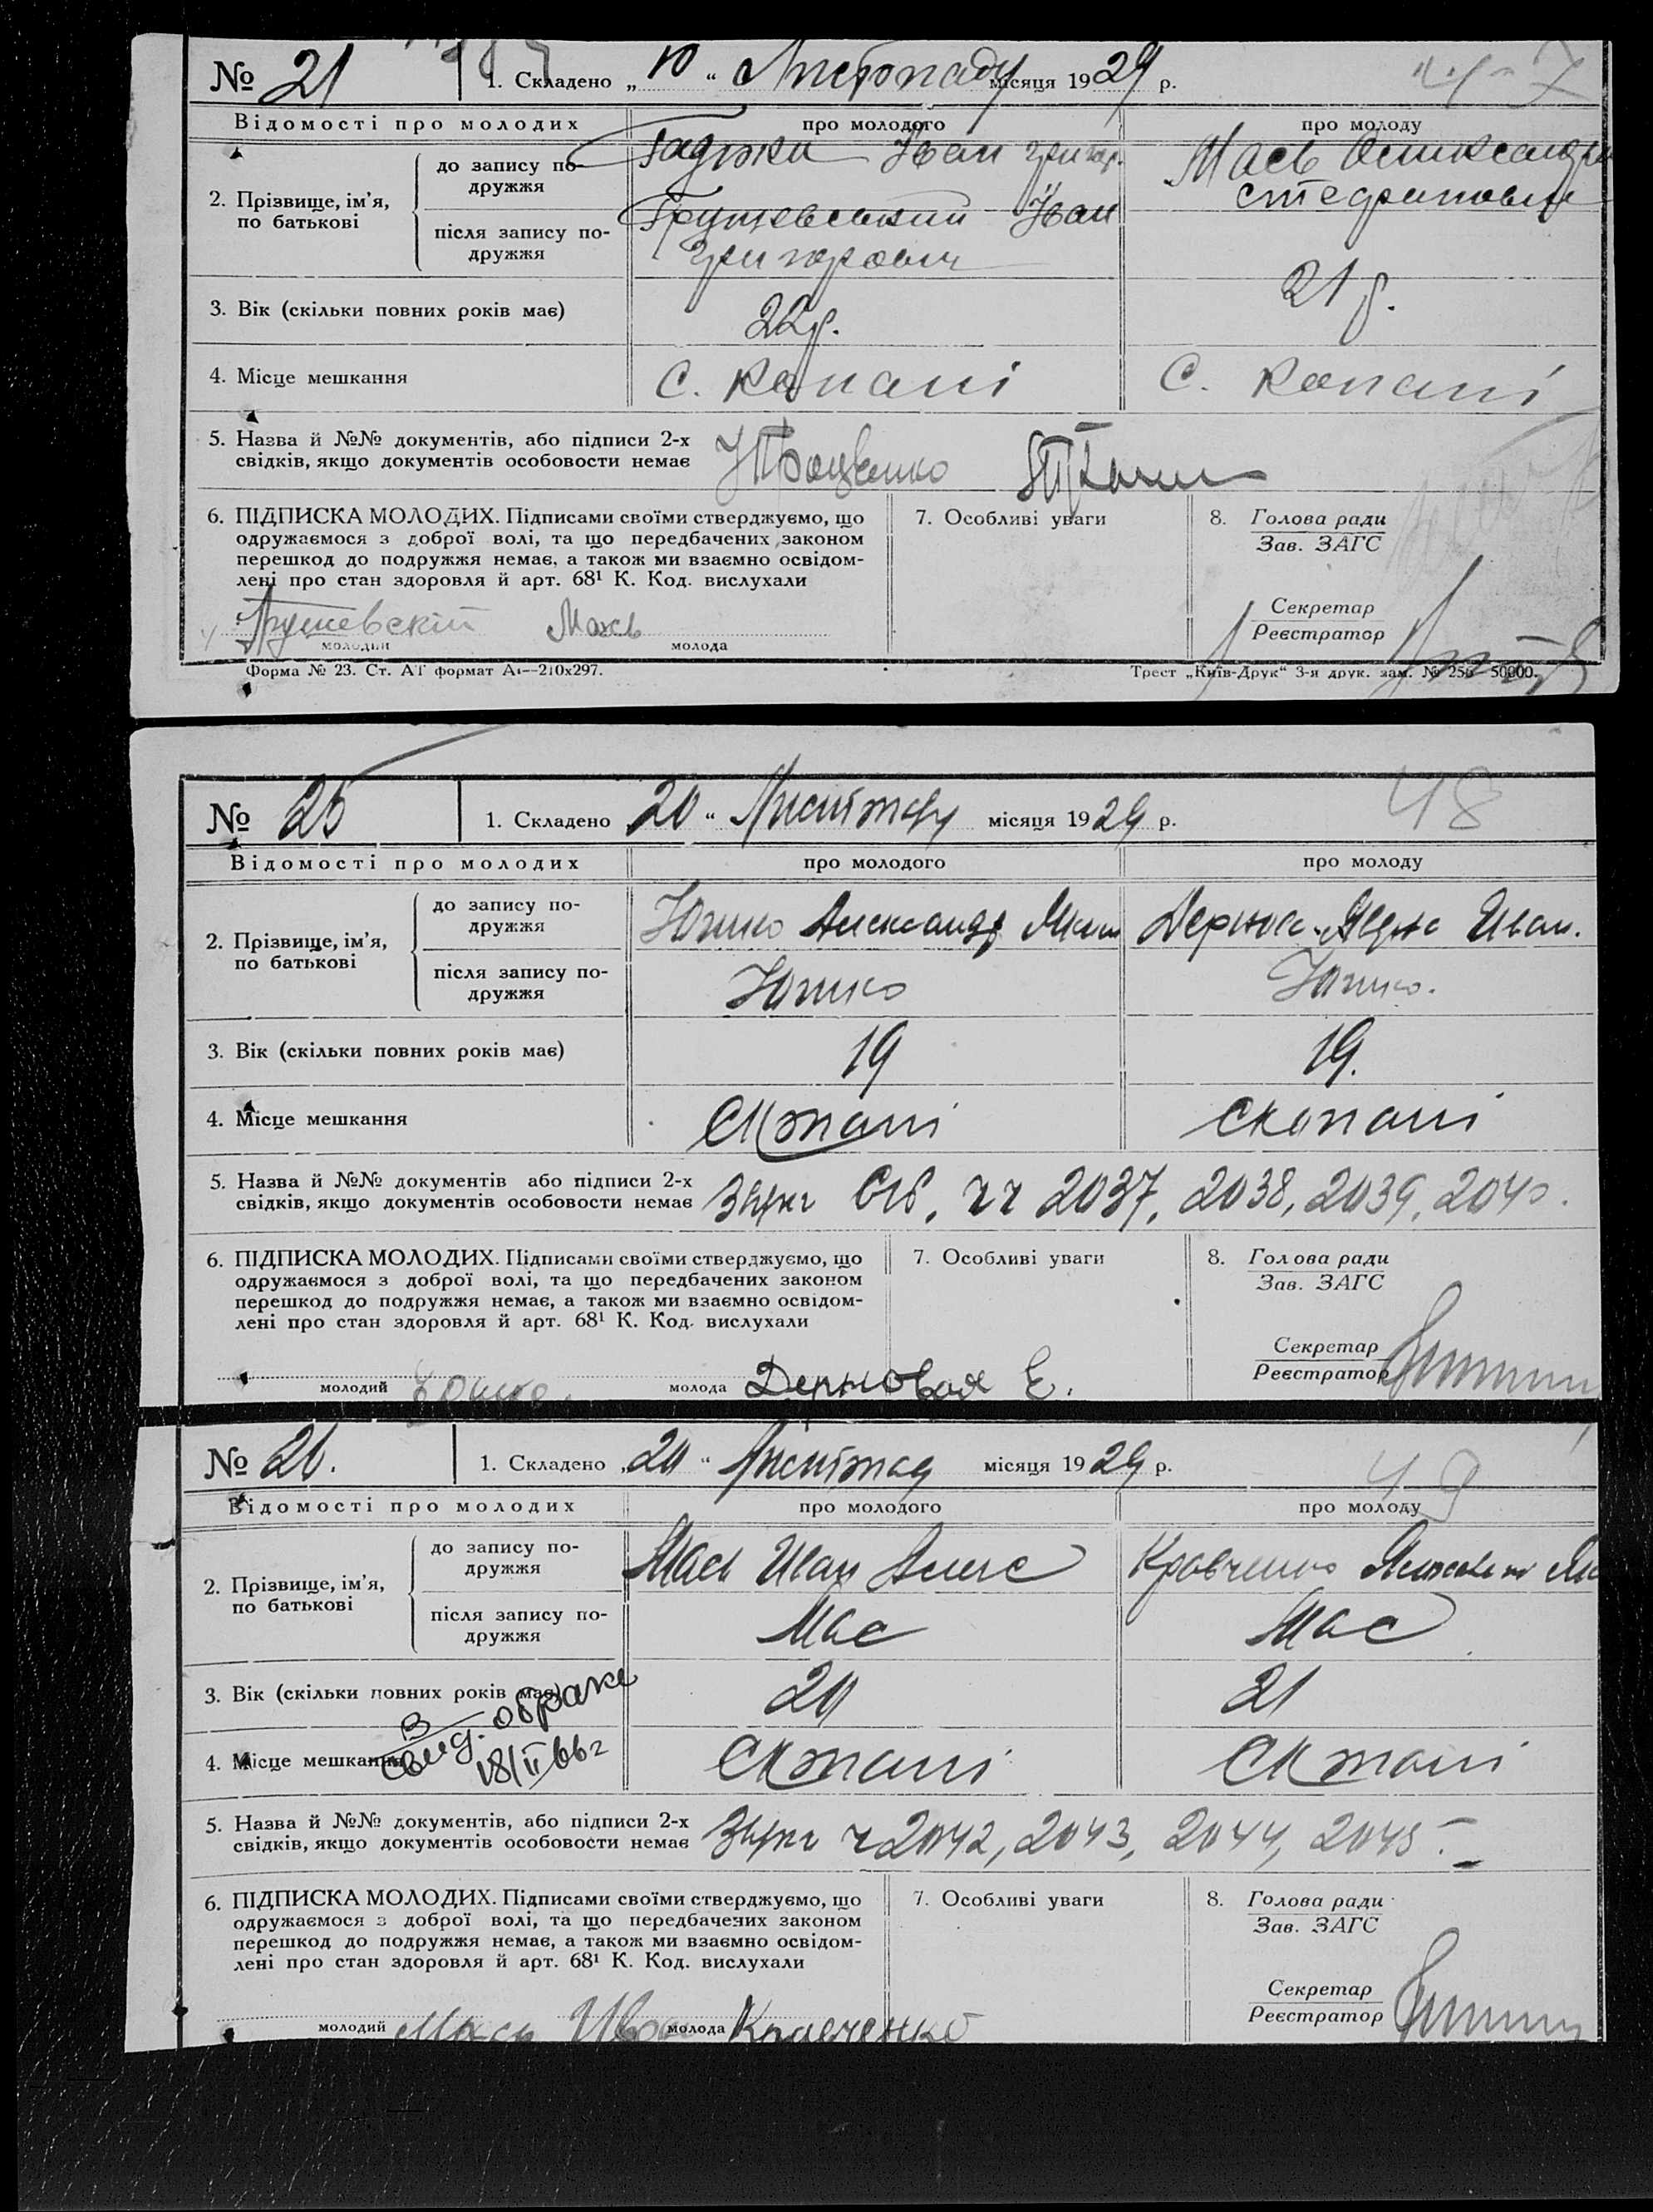 № 21 1. Складено „ 10 “ Листопаду місяця 1929 р.
Відомості про молодих про молодого про молоду
до запису подружжя Іван Григор. Мась
2. Прізвище, ім’я, по батькові
після запису подружжя Грушевський Іван
Григорович
3. Вік (скільки повних років має) 22 р. 21 р.
4. Місце мешкання С. Копані С. Копані
5. Назва й №№ документів, або підписи 2-х
свідків, якщо документів особовости немає
6. ПІДПИСКА МОЛОДИХ. Підписами своїми стверджуємо, що
одружаємося з доброї волі, та що передбачених законом
перешкод до подружжя немає, а також ми взаємно освідом-
лені про стан здоровля й арт. 68¹ К. Код. вислухали
7. Особливі уваги
8. Голова ради
Зав. ЗАГС
Секретар
Реєстратор
Грушевскій Мась
молодий молода
Форма № 23. Ст. АТ формат А₄—210х297. Трест „Київ-Друк“ 3-я друк. зам. № 256 50000.
48
№ 25 1. Складено 20 “ місяця 1929 р.
Відомості про молодих про молодого про молоду
до запису подружжя Юшко Александр Иван.
2. Прізвище, ім’я, по батькові
після запису подружжя Юшко Юшко.
3. Вік (скільки повних років має) 19 19.
4. Місце мешкання С Копані С Копані
5. Назва й №№ документів або підписи 2-х
свідків, якщо документів особовости немає чч 2037, 2038, 2039, 2040.
6. ПІДПИСКА МОЛОДИХ. Підписами своїми стверджуємо, що
одружаємося з доброї волі, та що передбачених законом
перешкод до подружжя немає, а також ми взаємно освідом-
лені про стан здоровля й арт. 68¹ К. Код. вислухали
7. Особливі уваги
8. Голова ради
Зав. ЗАГС
Секретар
Реєстратор
молодий Юшко. молода Дерновая Е.
49
№ 26. 1. Складено 20 “ місяця 1929 р.
Відомості про молодих про молодого про молоду
до запису подружжя Мась Иван Алекс Кравченко
2. Прізвище, ім’я, по батькові
після запису подружжя Мас Мас
3. Вік (скільки повних років має) 20 21
4. Місце мешкання С Копані С Копані
18/II 66 г
5. Назва й №№ документів, або підписи 2-х
свідків, якщо документів особовости немає ч 2042, 2043, 2044, 2045.
6. ПІДПИСКА МОЛОДИХ. Підписами своїми стверджуємо, що
одружаємося з доброї волі, та що передбачених законом
перешкод до подружжя немає, а також ми взаємно освідом-
лені про стан здоровля й арт. 68¹ К. Код. вислухали
7. Особливі уваги
8. Голова ради
Зав. ЗАГС
Секретар
Реєстратор
молодий Мась Ива молода Кравченко